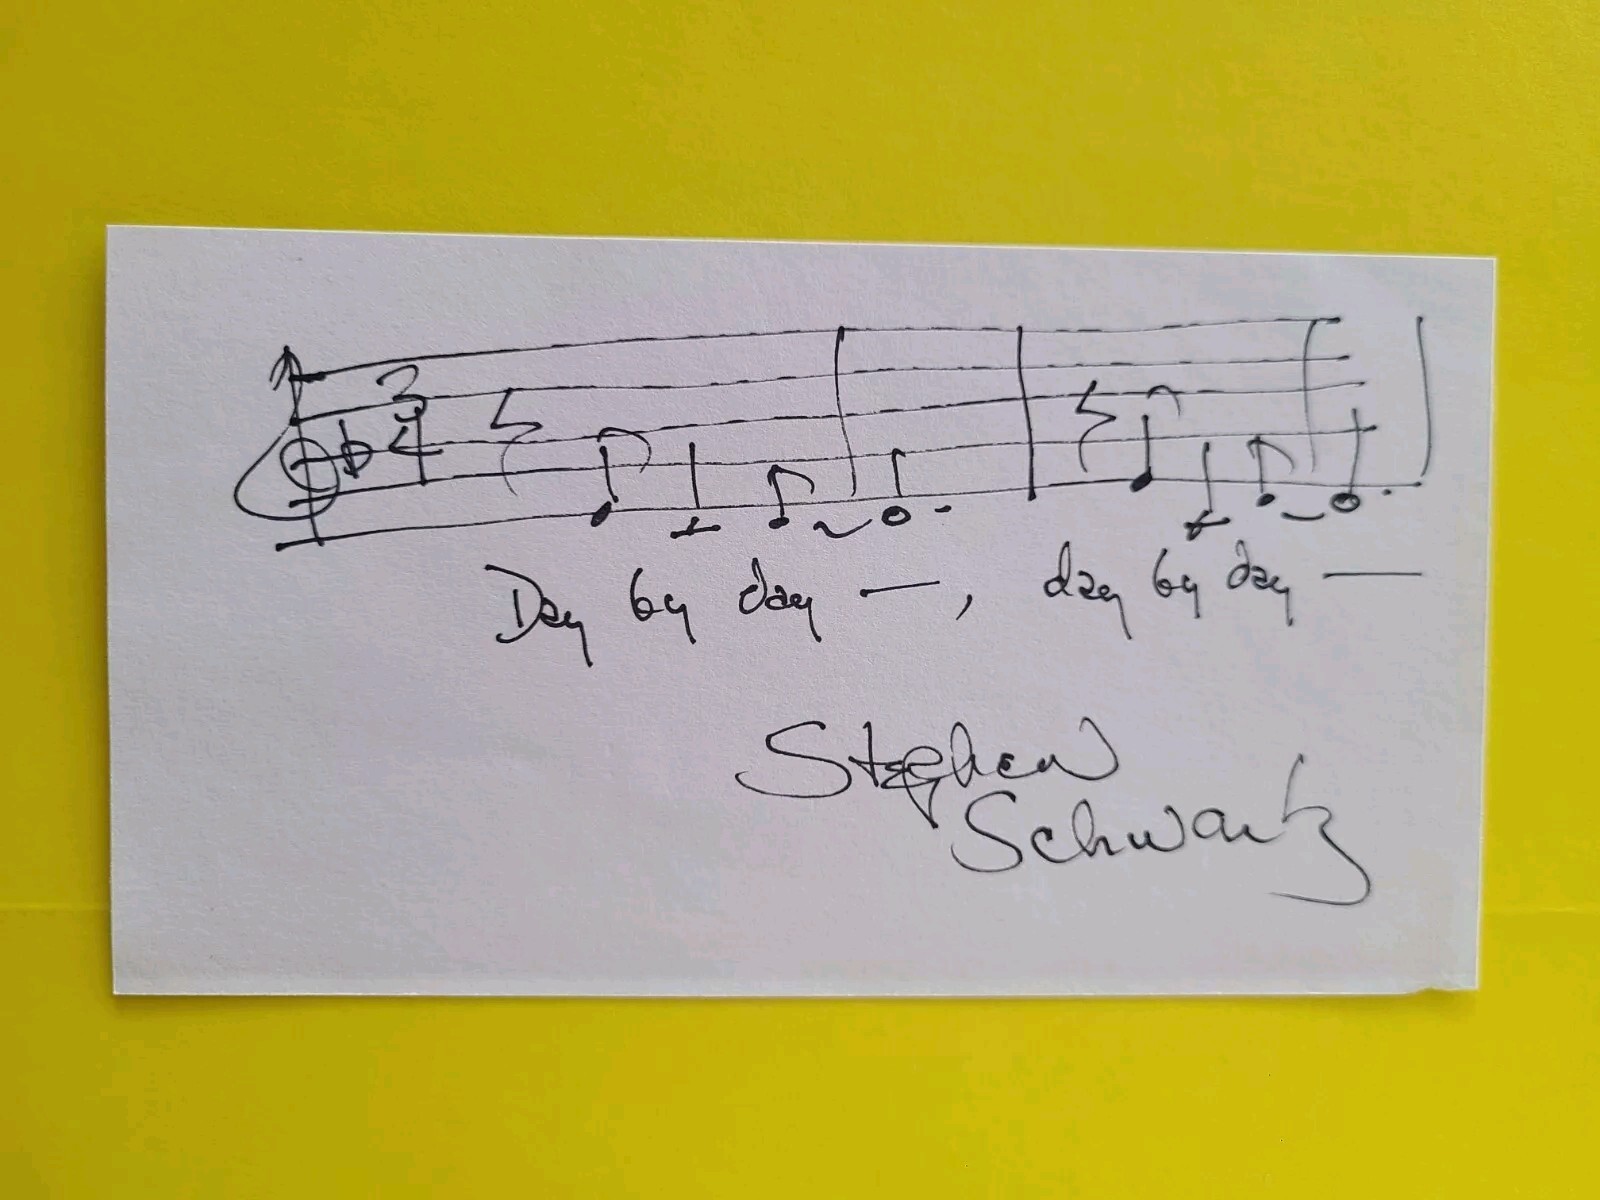 3
4
Day by day —, day by day —
Stephen
Schwartz